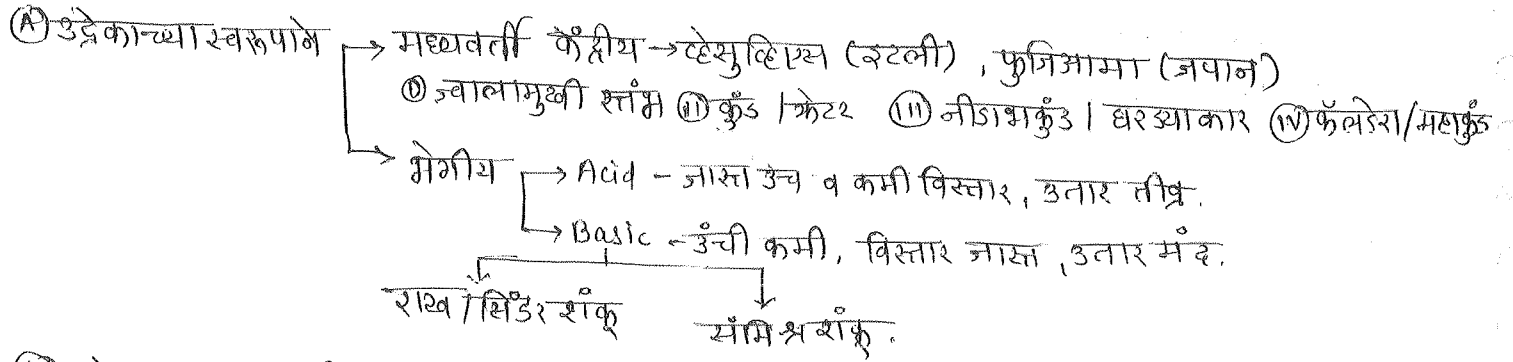 Ⓐ उद्रेकाच्या स्वरूपाने → मध्यवर्ती केंद्रीय → व्हेसुव्हिएस (इटली), फुजिआमा (जपान)
Ⓘ ज्वालामुखी स्तंभ Ⓘⅼ कुंड / क्रेटर ⒾⅠⅠ नीडाभकुंड / घरड्याकार ⒾⅤ कॅलडेरा/महाकुंड
→ भेगीय → Acid - जास्त उंच व कमी विस्तार, उतार तीव्र.
→ Basic - उंची कमी, विस्तार जास्त, उतार मंद.
राख / सिंडर शंकू संमिश्र शंकू.